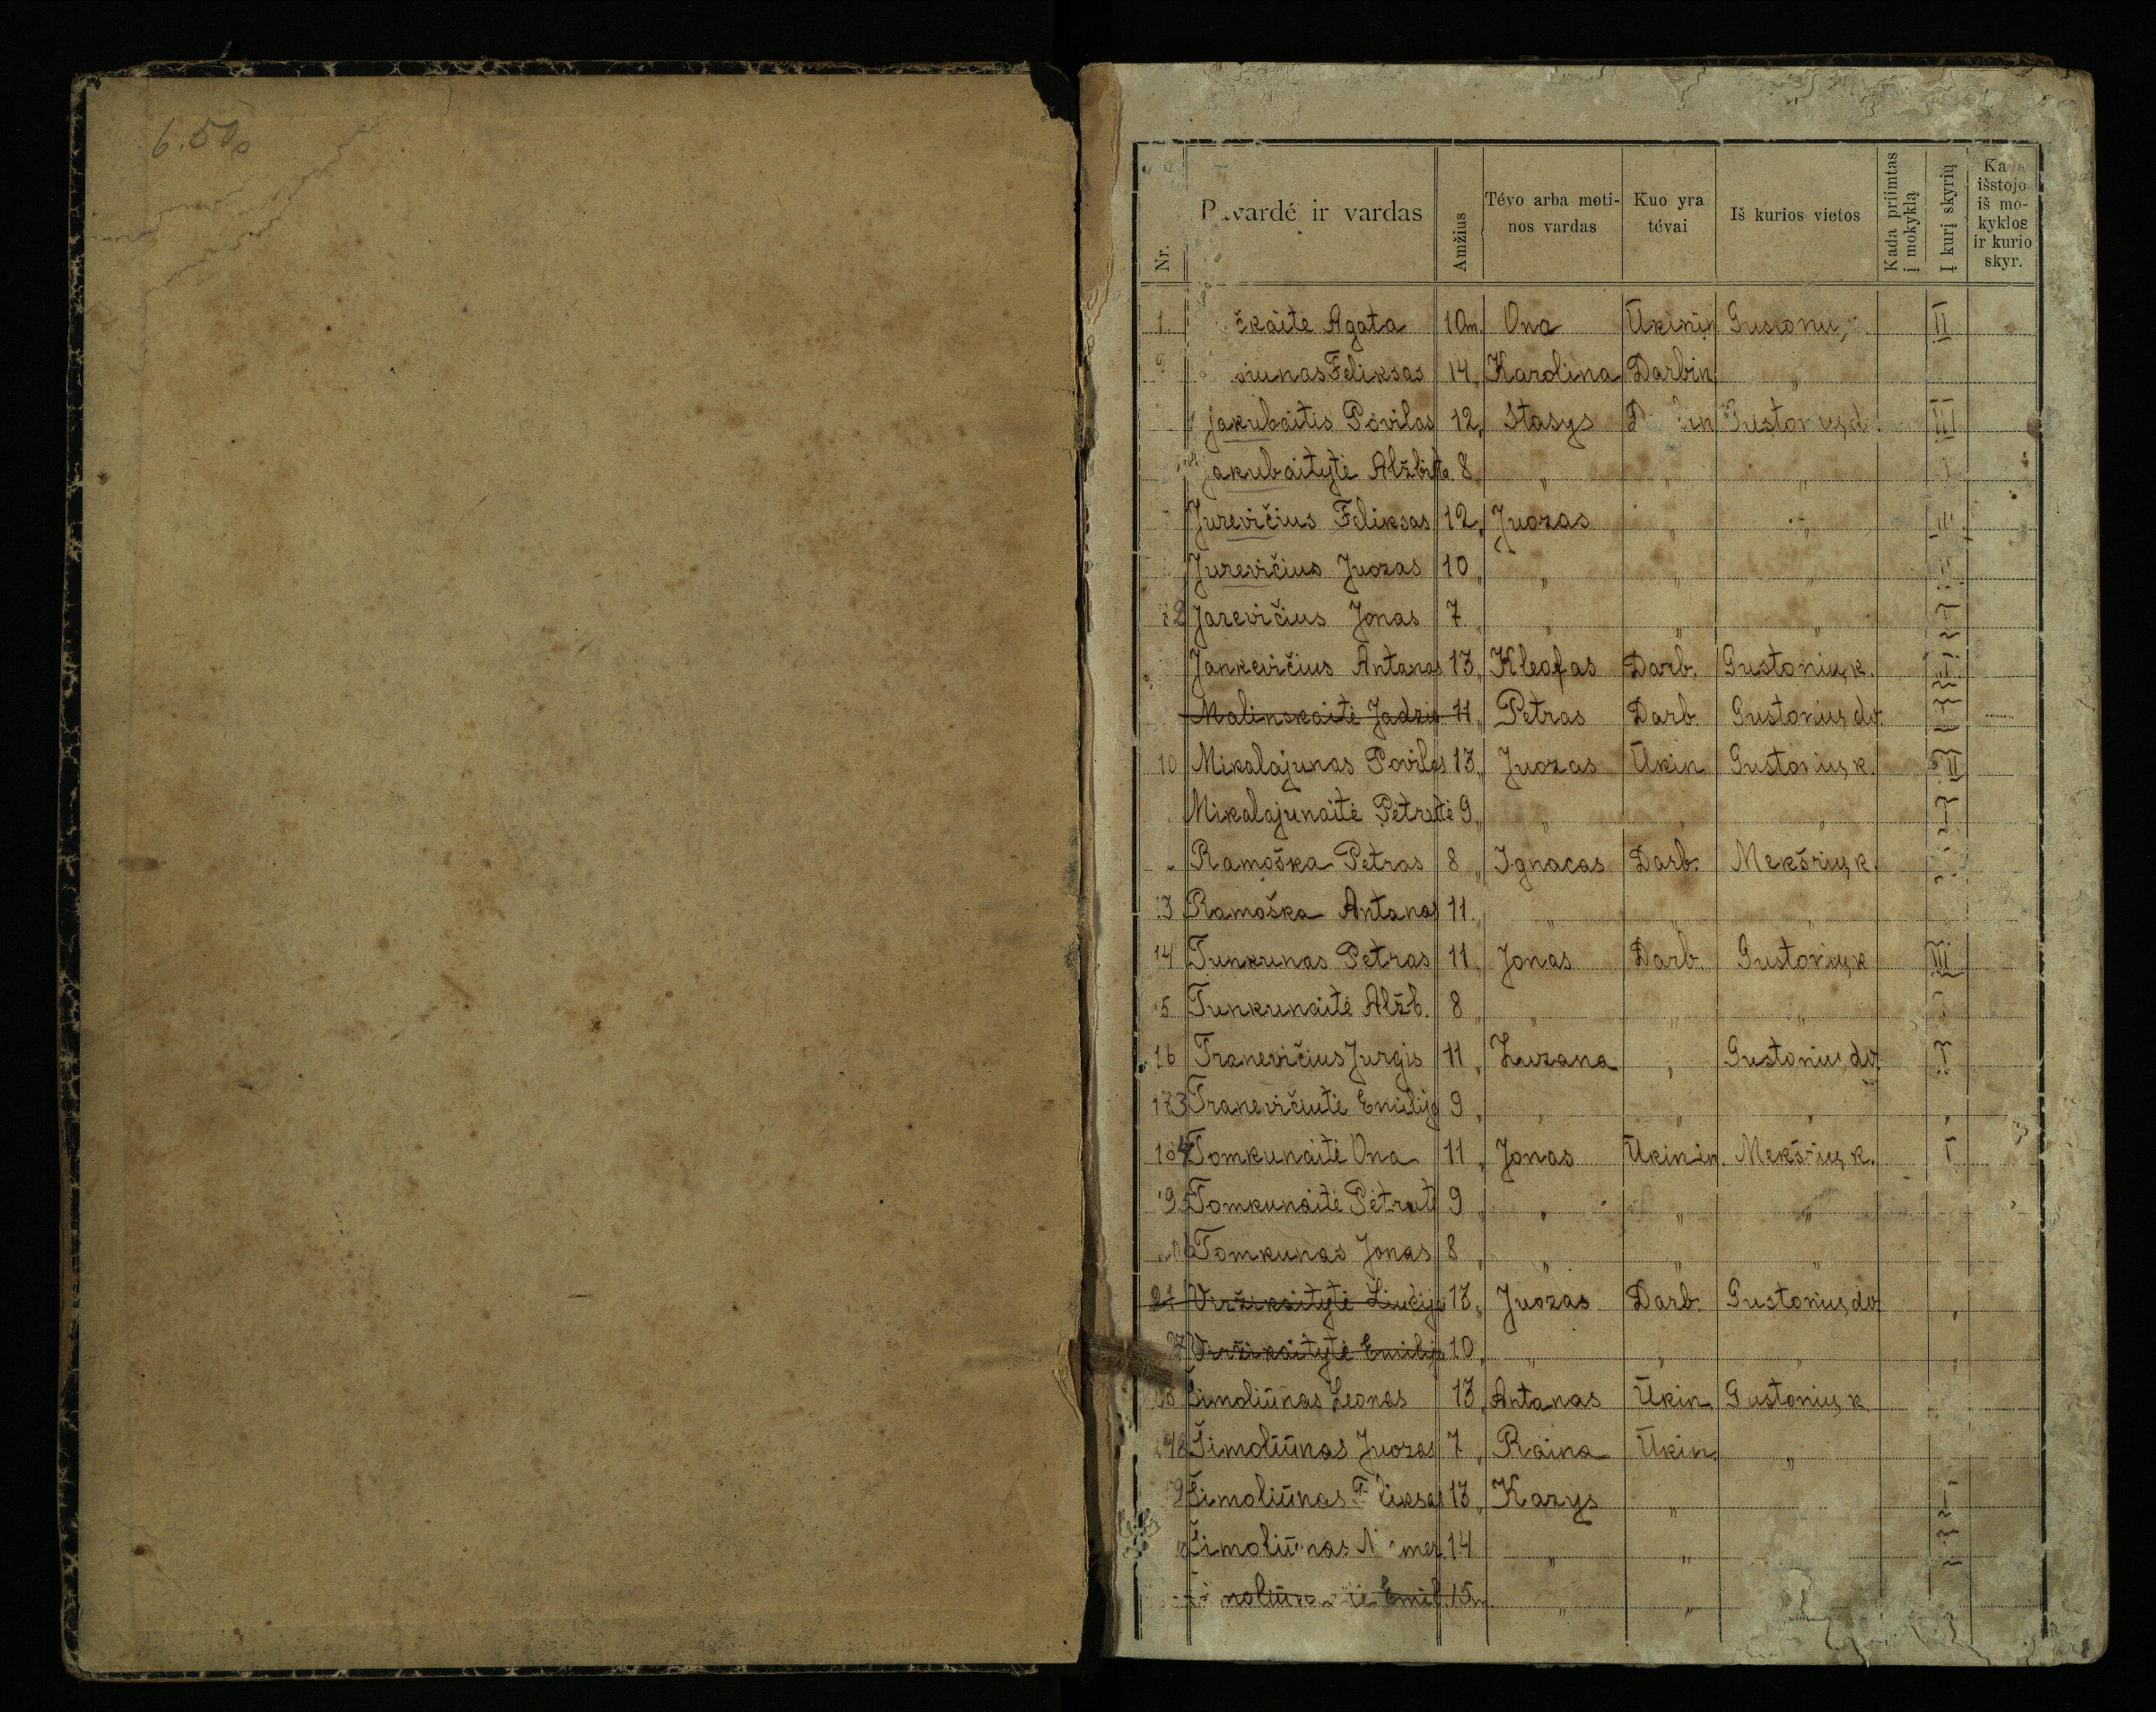 6.50
Nr. Pavardė ir vardas Amžius Tėvo arba motinos vardas Kuo yra tėvai Iš kurios vietos Kada priimtas į mokyklą Į kurį skyrių Ka išstojo iš mokyklos ir kurio skyr.
1. čkaitė Agata 10 m. Ona Ūkinin. II
Feliksas 14 „ Karolina Darbin. „
Jakubaitis Povilas 12 „ Stasys Gustonių d. III
Jakubaitytė Alžbieta 8 „ „ „ „ I
Jurevičius Feliksas 12 „ Juozas „ „ III
Jurevičius Juozas 10 „ „ „ „
Jarevičius Jonas 7 „ „ „ „ I
Jankevičius Antanas 13 „ Kleofas Darb. Gustonių k. I
Malinskaitė Jadzė 11 „ Petras Darb. Gustonių dv. I
10 Mikalajunas Povilas 13 „ Juozas Ūkin. Gustonių k. II
Mikalajunaitė Petrutė 9 „ „ „ „ I
Ramoška Petras 8 „ Ignacas Darb. Mekšrių k.
13 Ramoška Antanas 11 „ „ „ „
14 Tunkunas Petras 11 „ Jonas Darb. Gustonių k. III
15 Tunkunaitė Alžb. 8 „ „ „ „
16 Tranevičius Jurgis 11 „ Zuzana „ Gustonių dv. I
17 3 Tranevičiutė Emilija 9 „ „ „ „ „
18 4 Tomkunaitė Ona 11 „ Jonas Ūkinin. Mekšrių k. I
19 5 Tomkunaitė Petrutė 9 „ „ „ „
Tomkunas Jonas 8 „ „ „ „
21 Viržikaitytė Liucija 13 „ Juozas Darb. Gustonių dv. „
Viržikaitytė Emilija 10 „ „ „ „ „
Šimoliūnas Leonas 13 „ Antanas Ūkin. Gustonių k.
24 8 Šimoliūnas Juozas 7 „ Raina Ūkin. „
Šimoliūnas Feliksas 13 „ Kazys „ I
Šimoliūnas 14 „ „
Emil. 15 m. „ „